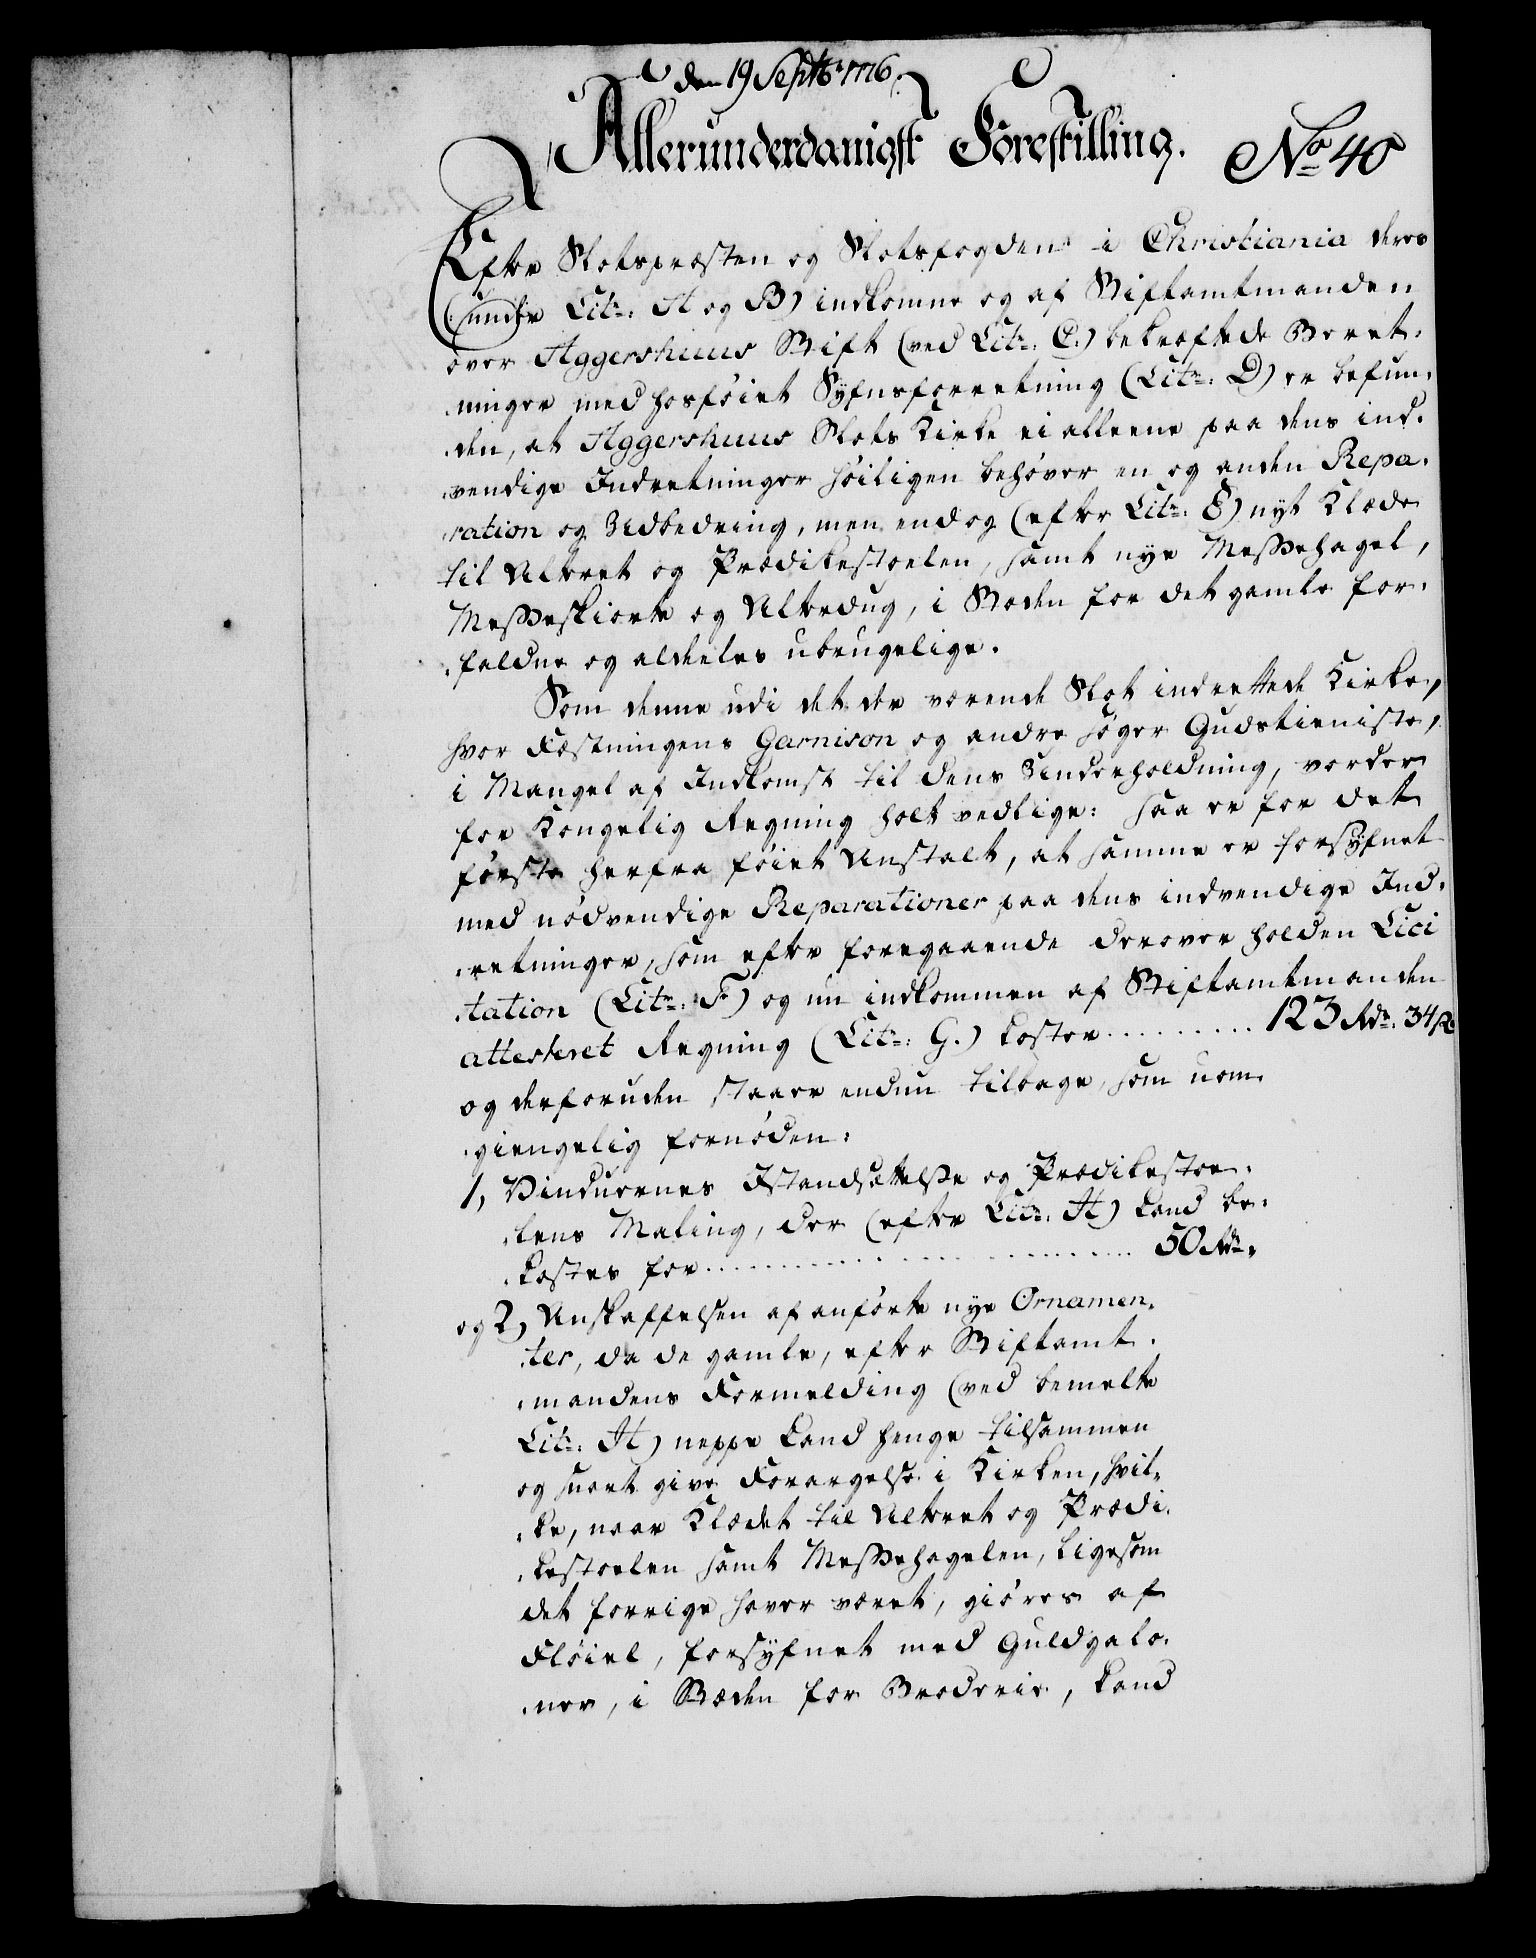 den 19 Septb: 1776.
Allerunderdanigst Forestilling.
No 40
Efter Slotspræsten og Slotsfogden i Christiania deres
(under Litr: A og B) indkomne og af Stiftamtmanden
over Aggershuus Stift (ved Litr: C.) bekræftede Beret-
ninger med hosføiet Syfnsforretning (Litr: D) er befun-
den, at Aggershuus Slots Kirke ei alleene paa dens ind-
vendige Indretninger høiligen behøver en og anden Repa-
ration og Udbedring, men endog (efter Litr: E) nyt Klæde
til Alteret og Prædikestoelen, samt nye Messehagel,
Messeskiorte og Alterdug, i Steden for det gamle for-
faldne og aldeeles ubrugelige.
Som denne udi det der værende Slot indrettede Kirke,
hvor Fæstningens Garnison og andre søger Gudstieniste,
i Mangel af Indkomst til dens Underholdning, vorder
for Kongelig Regning holt vedlige: saa er for det
første herfra føiet Anstalt, at samme er forsyfnet
med nødvendige Reparationer paa dens indvendige Ind-
retninger, som efter foregaaende derover holden Lici
tation (Litr: F) og nu indkommen af Stiftamtmanden
attesteret Regning (Litr: G.) koster ......... 123 Rdr. 34 s
og derforuden staaer endnu tilbage, som uom-
giengelig fornøden:
1, Vinduernes Istandsættelse og Prædikestoe-
lens Maling, der (efter Litr: H) kand be-
kostes for .............. 50 Rdr.
og 2, Anskaffelsen af anførte nye Ornamen-
ter, da de gamle, efter Stiftamt-
mandens Formelding (ved bemelte
Litr: H) neppe kand henge tilsammen
og snart give Forargelse i Kirken, hvil-
ke, naar Klædet til Alteret og Prædi-
kestoelen samt Messehagelen, ligesom
det forrige haver været, giøres af
Fløiel, forsyfnet med Guldgalo-
ner, i Stæden for Broderie, kand